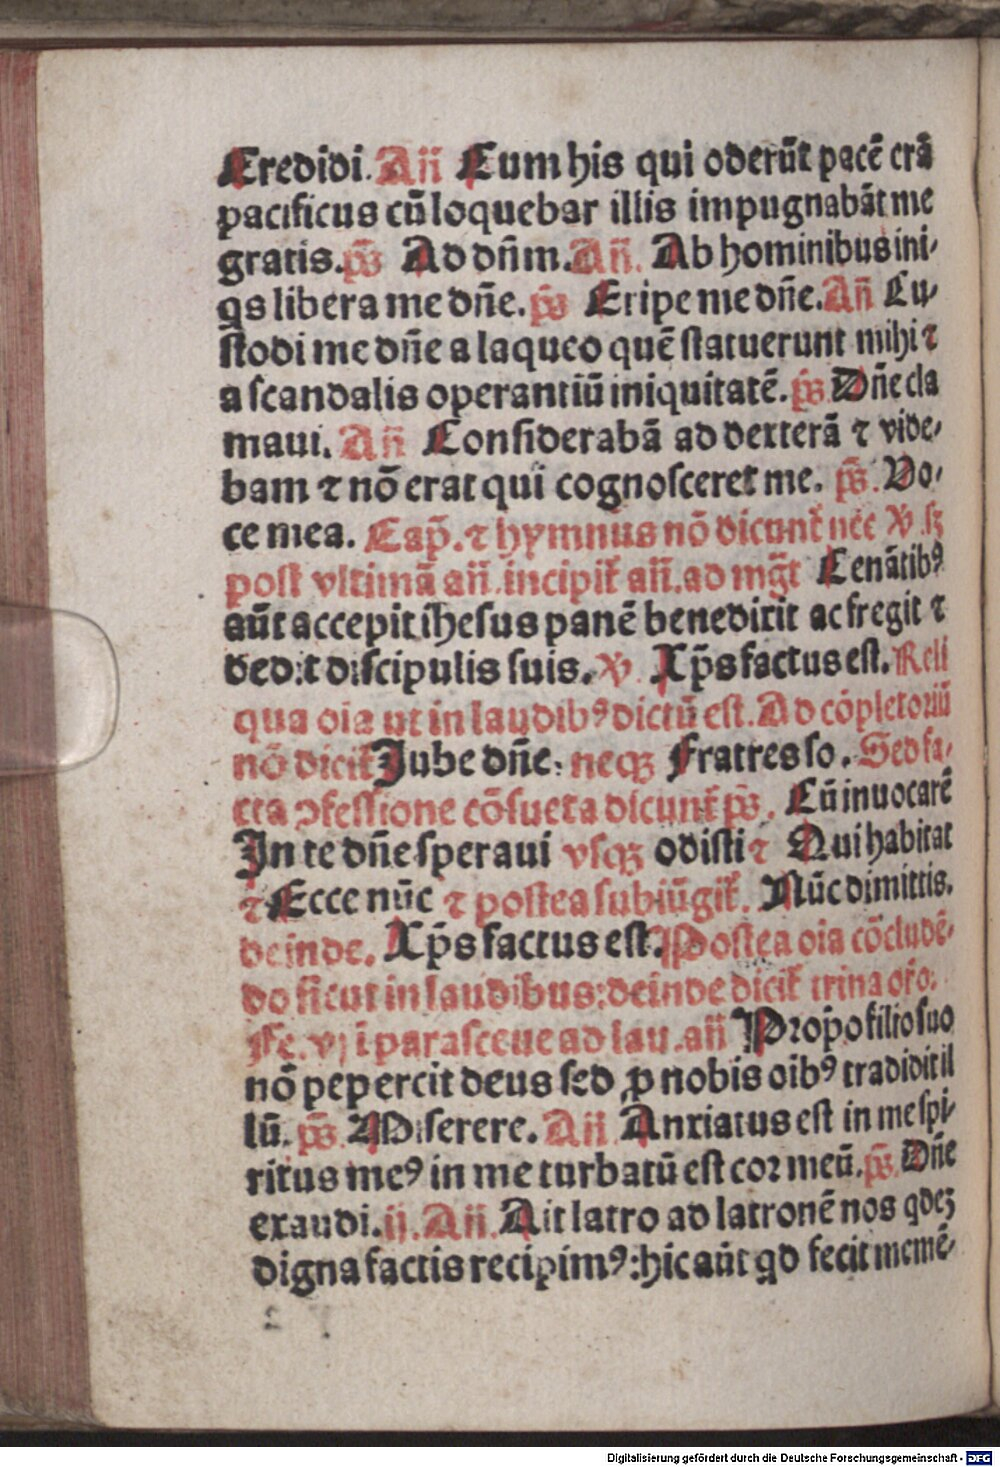 Credidi. Añ Cum his qui oderũt pacẽ erã
pacificus cũ loquebar illis impugnabãt me
gratis. p̃s Ad dñm. Añ. Ab hominibus ini⸗
qs libera me dñe. p̃s Eripe me dñe. Añ Cu⸗
ſtodi me dñe a laqueo quẽ ſtatuerunt mihi ⁊
a ſcandalis operantiũ iniquitatẽ. p̃s. Dñe cla
maui. Añ Conſiderabã ad dexterã ⁊ vide⸗
bam ⁊ nõ erat qui cognoſceret me. p̃s. Vo⸗
ce mea. Cap̃. ⁊ hymnus nõ dicunt̃ nec ℣. ſꝫ
poſt vltimã añ. incipit̃ añ. ad mg̃t Cenãtibꝰ
aũt accepit iheſus panẽ benedixit ac fregit ⁊
dedit diſcipulis ſuis. ℣. Xp̃s factus eſt. Reli
qua oĩa ut in laudibꝰ dictũ eſt. Ad cõpletoriũ
nõ dicit̃ Jube dñe: neqꝫ Fratres ſo. Sed fa⸗
cta ↄfeſſione cõſueta dicunt̃ p̃s. Cũ inuocarẽ
In te dñe ſperaui vſqꝫ odiſti ⁊ Qui habitat
⁊ Ecce nũc ⁊ poſtea ſubiũgit̃. Nũc dimittis.
deinde. Xp̃s factus eſt. Poſtea oĩa cõcludẽ⸗
do ſicut in laudibus: deinde dicit̃ trina or̃o.
Fe. vj ĩ paraſceue ad lau. añ Prop̃o filio ſuo
nõ pepercit deus ſed ꝓ nobis oĩbꝰ tradidit il
lũ. p̃s. Miſerere. Añ Anxiatus eſt in me ſpi⸗
ritus meꝰ in me turbatũ eſt cor meũ. p̃s. Dñe
exaudi. ij. Añ. Ait latro ad latronẽ nos qdeꝫ
digna factis recipimꝰ: hic aũt qd fecit memẽ⸗
Digitalisierung gefördert durch die Deutsche Forschungsgemeinschaft - DFG